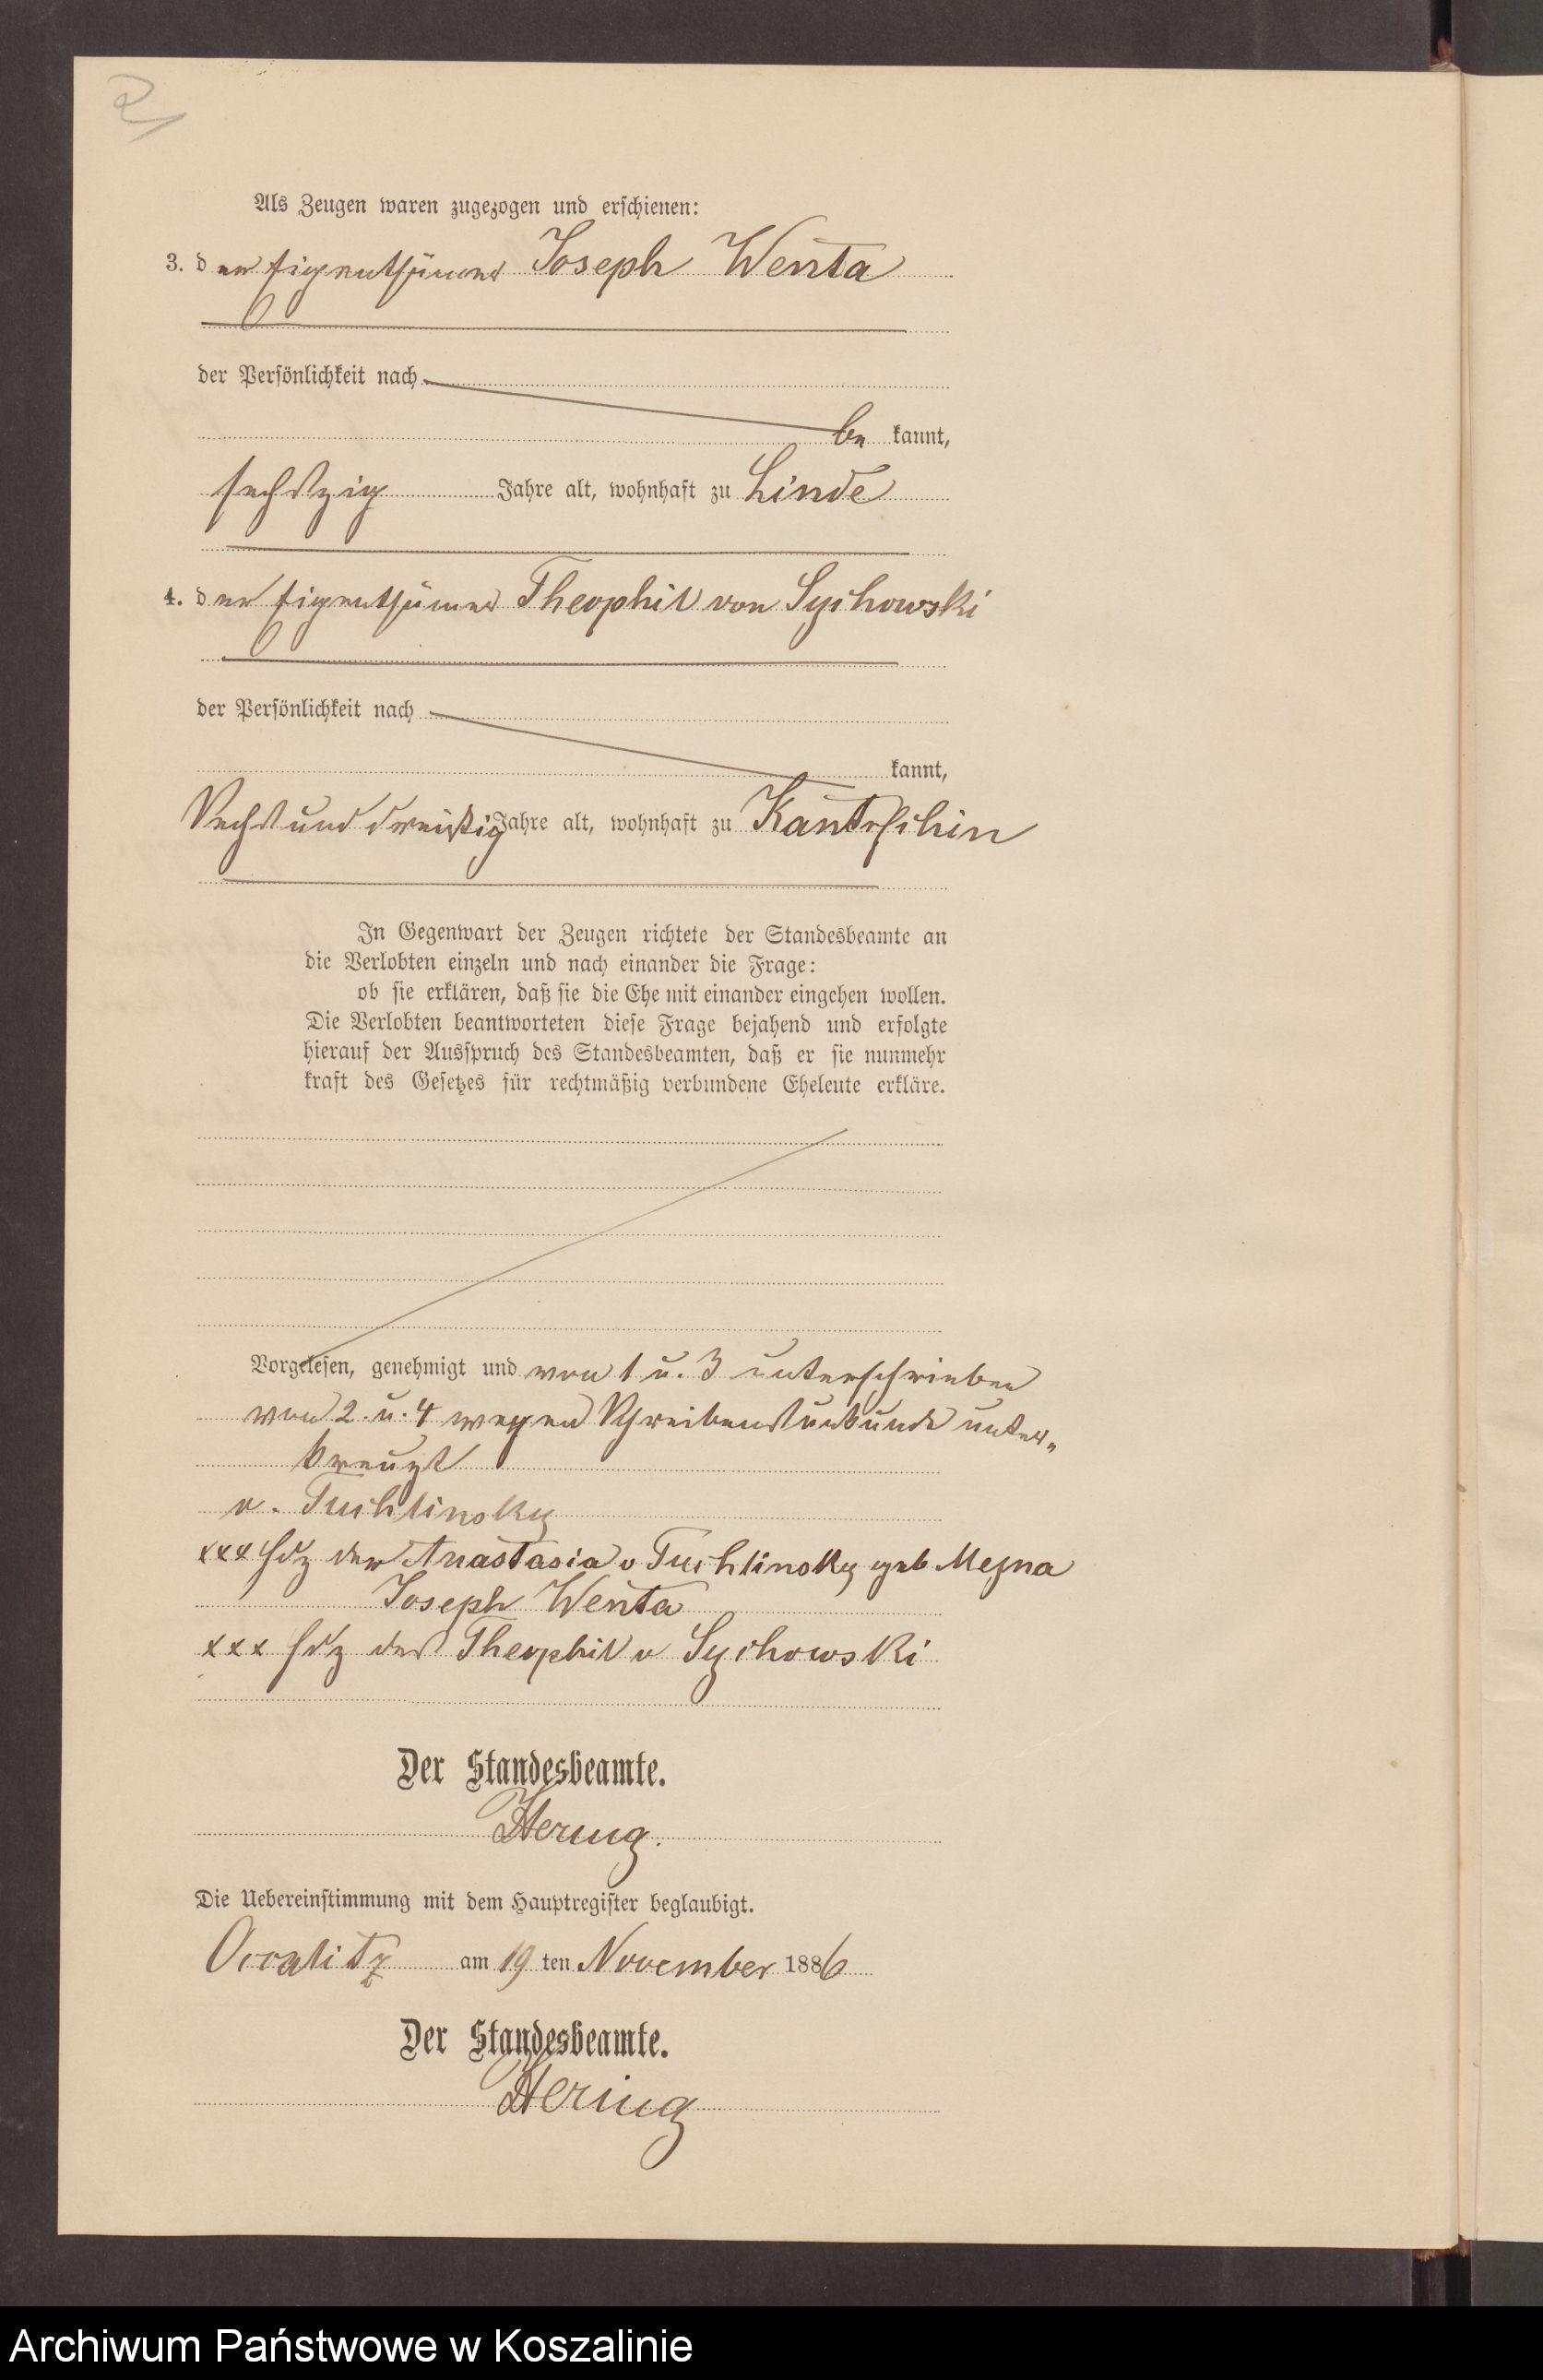 21
Als Zeugen waren zugezogen und erschienen:
3. der Eigenthümer Joseph Wenta
der Persönlichkeit nach
be kannt,
sechszig Jahre alt, wohnhaft zu Linde
4. der Eigenthümer Theophil von Sychowski
der Persönlichkeit nach
kannt,
Sechsunddreißig Jahre alt, wohnhaft zu Kantrschin
In Gegenwart der Zeugen richtete der Standesbeamte an
die Verlobten einzeln und nach einander die Frage:
ob sie erklären, daß sie die Ehe mit einander eingehen wollen.
Die Verlobten beantworteten diese Frage bejahend und erfolgte
hierauf der Ausspruch des Standesbeamten, daß er sie nunmehr
kraft des Gesetzes für rechtmäßig verbundene Eheleute erkläre.
Vorgelesen, genehmigt und von 1 u. 3 unterschrieben
von 2. u. 4 wegen Schreibensunkunde unter„
kreuzt
v. Tuchlinsky
xxx Hdz der Anastasia v Tuchlinsky geb Mejna
Joseph Wenta
xxx Hdz des Theophil v Sychowski
Der Standesbeamte.
Hering.
Die Uebereinstimmung mit dem Hauptregister beglaubigt.
Occalitz am 19 ten November 1886
Der Standesbeamte.
Hering
Archiwum Państwowe w Koszalinie